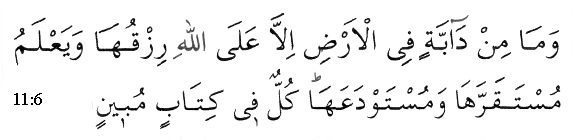 وَمَا مِنْ دَٓابَّةٍ فِى الْاَرْضِ اِلَّا عَلَى اللّٰهِ رِزْقُهَا وَيَعْلَمُ
مُسْتَقَرَّهَا وَمُسْتَوْدَعَهَاۜ كُلٌّ ف۪ى كِتَابٍ مُب۪ينٍ 11:6